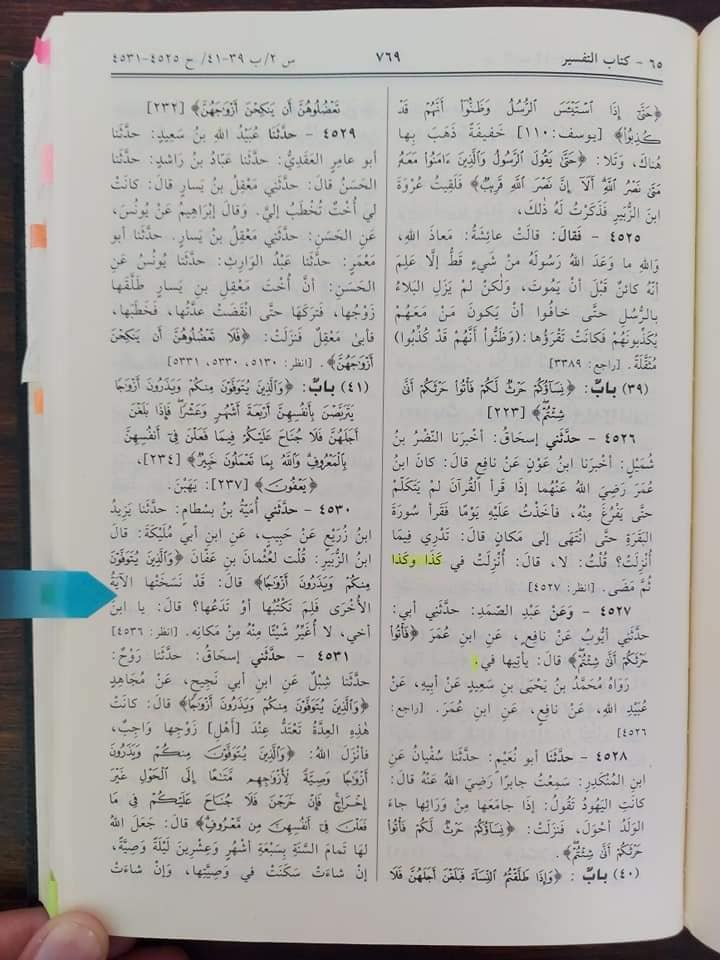 ٦٥ - كتاب التفسير
٧٦٩
س ٢/ب ٣٩-٤١/ ح ٤٥٢٥-٤٥٣١
﴿حَتَّىٰ إِذَا اسْتَيْـَٔسَ الرُّسُلُ وَظَنُّوٓا أَنَّهُمْ قَدْ
كُذِبُوا﴾ [يوسف: ١١٠] خَفِيفَةً ذَهَبَ بِها
هُناكَ، وَتَلا: ﴿حَتَّىٰ يَقُولَ الرَّسُولُ وَالَّذِينَ ءَامَنُوا مَعَهُ
مَتَىٰ نَصْرُ اللَّهِ أَلَآ إِنَّ نَصْرَ اللَّهِ قَرِيبٌ﴾ فَلَقِيتُ عُرْوَةَ
ابنَ الزُّبَيْرِ فَذَكَرْتُ لَهُ ذٰلِكَ،
٤٥٢٥ - فَقالَ: قالَتْ عائِشَةُ: مَعاذَ اللهِ،
وَاللهِ ما وَعَدَ اللهُ رَسُولَهُ مِنْ شَيْءٍ قَطُّ إلَّا عَلِمَ
أنَّهُ كائِنٌ قَبْلَ أنْ يَمُوتَ، وَلٰكِنْ لَمْ يَزَلِ البَلاءُ
بالرُّسُلِ حتَّى خافُوا أنْ يَكُونَ مَنْ مَعَهُمْ
يُكَذِّبُونَهُمْ فَكانَتْ تَقْرَؤُها: (وَظَنُّوا أنَّهُمْ قَدْ كُذِّبُوا)
مُثَقَّلَةً. [راجع: ٣٣٨٩]
(٣٩) بابٌ: ﴿نِسَآؤُكُمْ حَرْثٌ لَّكُمْ فَأْتُوا حَرْثَكُمْ أَنَّىٰ
شِئْتُمْ﴾ [٢٢٣]
٤٥٢٦ - حدَّثَني إسحَاقُ: أخبرَنا النَّضْرُ بنُ
شُمَيْلٍ: أخبرَنا ابنُ عَوْنٍ عَنْ نافِعٍ قالَ: كانَ ابنُ
عُمَرَ رَضِيَ اللهُ عَنْهُما إذَا قَرأ القُرآنَ لَمْ يَتَكَلَّمْ
حتَّى يَفْرُغَ مِنْهُ، فأخَذْتُ عَلَيْهِ يَوْمًا فَقَرأ سُورَةَ
البَقَرَةِ حتَّى انْتَهَى إلى مَكانٍ قالَ: تَدْرِي فِيمَا
أُنْزِلَتْ؟ قُلْتُ: لا، قالَ: أُنْزِلَتْ في كَذا وكَذا
ثُمَّ مَضَى. [انظر: ٤٥٢٧]
٤٥٢٧ - وَعَنْ عَبدِ الصَّمَدِ: حدَّثَني أبي:
حدَّثَني أيُّوبُ عَنْ نافِعٍ، عَنِ ابنِ عُمَرَ ﴿فَأْتُوا
حَرْثَكُمْ أَنَّىٰ شِئْتُمْ﴾ قالَ: يأتِيها في.
رَوَاهُ مُحَمَّدُ بنُ يَحْيَى بنِ سَعِيدٍ عَنْ أبيهِ، عَنْ
عُبَيْدِ اللهِ، عَنْ نافِعٍ، عَنِ ابنِ عُمَرَ. [راجع:
٤٥٢٦]
٤٥٢٨ - حدَّثَنا أبو نُعَيْمٍ: حدَّثَنا سُفْيانُ عَنِ
ابنِ المُنْكَدِرِ: سَمِعْتُ جابِرًا رَضِيَ اللهُ عَنْهُ قالَ:
كانَتِ اليَهُودُ تَقُولُ: إذَا جامَعَها مِنْ وَرَائِها جاءَ
الوَلَدُ أحْوَلَ، فَنزَلَتْ: ﴿نِسَآؤُكُمْ حَرْثٌ لَّكُمْ فَأْتُوا
حَرْثَكُمْ أَنَّىٰ شِئْتُمْ﴾.
(٤٠) بابٌ: ﴿وَإِذَا طَلَّقْتُمُ النِّسَآءَ فَبَلَغْنَ أَجَلَهُنَّ فَلَا
تَعْضُلُوهُنَّ أَن يَنكِحْنَ أَزْوَاجَهُنَّ﴾ [٢٣٢]
٤٥٢٩ - حدَّثَنا عُبَيْدُ اللهِ بنُ سَعِيدٍ: حدَّثَنا
أبو عامِرٍ العَقَدِيُّ: حدَّثَنا عَبَّادُ بنُ رَاشِدٍ: حدَّثَنا
الحَسَنُ قالَ: حدَّثَني مَعْقِلُ بنُ يَسارٍ قالَ: كانَتْ
لي أُخْتٌ تُخْطَبُ إليَّ. وَقالَ إبْرَاهِيمُ عَنْ يُونُسَ،
عَنِ الحَسَنِ: حدَّثَني مَعْقِلُ بنُ يَسارٍ. حدَّثَنا أبو
مَعْمَرٍ: حدَّثَنا عَبْدُ الوَارِثِ: حدَّثَنا يُونُسُ عَنِ
الحَسَنِ: أنَّ أُخْتَ مَعْقِلِ بنِ يَسارٍ طَلَّقَها
زَوْجُها، فَترَكَها حتَّى انْقَضَتْ عِدَّتُها، فَخَطَبَها،
فأبىٰ مَعْقِلٌ فَنزَلَتْ: ﴿فَلَا تَعْضُلُوهُنَّ أَن يَنكِحْنَ
أَزْوَاجَهُنَّ﴾. [انظر: ٥١٣٠، ٥٣٣٠، ٥٣٣١]
(٤١) بابٌ: ﴿وَالَّذِينَ يُتَوَفَّوْنَ مِنكُمْ وَيَذَرُونَ أَزْوَاجًا
يَتَرَبَّصْنَ بِأَنفُسِهِنَّ أَرْبَعَةَ أَشْهُرٍ وَعَشْرًا فَإِذَا بَلَغْنَ
أَجَلَهُنَّ فَلَا جُنَاحَ عَلَيْكُمْ فِيمَا فَعَلْنَ فِىٓ أَنفُسِهِنَّ
بِالْمَعْرُوفِ وَاللَّهُ بِمَا تَعْمَلُونَ خَبِيرٌ﴾ [٢٣٤].
﴿يَعْفُونَ﴾ [٢٣٧]: يَهَبْنَ.
٤٥٣٠ - حدَّثَني أُمَيَّةُ بنُ بِسْطامٍ: حدَّثَنا يَزِيدُ
ابنُ زُرَيْعٍ عَنْ حَبِيبٍ، عَنِ ابنِ أبي مُلَيْكَةَ: قالَ
ابنُ الزُّبَيْرِ: قُلْت لعُثْمانَ بنِ عَفَّانَ ﴿وَالَّذِينَ يُتَوَفَّوْنَ
مِنكُمْ وَيَذَرُونَ أَزْوَاجًا﴾ قالَ: قَدْ نَسَخَتْها الآيَةُ
الأُخْرَى فَلِمَ تَكْتُبُها أوْ تَدَعُها؟ قالَ: يا ابنَ
أخي، لا أُغَيِّرُ شَيْئًا مِنْهُ مِنْ مَكانِهِ. [انظر: ٤٥٣٦]
٤٥٣١ - حدَّثَني إسحَاقُ: حدَّثَنا رَوْحٌ:
حدَّثَنا شِبْلٌ عَنِ ابنِ أبي نَجِيحٍ، عَنْ مُجَاهِدٍ
﴿وَالَّذِينَ يُتَوَفَّوْنَ مِنكُمْ وَيَذَرُونَ أَزْوَاجًا﴾ قالَ: كانَتْ
هٰذِهِ العِدَّةُ تَعْتَدُّ عِنْدَ [أَهْلِ] زَوْجِها وَاجِبٌ،
فأنْزَلَ اللهُ: ﴿وَالَّذِينَ يُتَوَفَّوْنَ مِنكُمْ وَيَذَرُونَ
أَزْوَاجًا وَصِيَّةً لِّأَزْوَاجِهِم مَّتَاعًا إِلَى الْحَوْلِ غَيْرَ
إِخْرَاجٍ فَإِنْ خَرَجْنَ فَلَا جُنَاحَ عَلَيْكُمْ فِى مَا
فَعَلْنَ فِىٓ أَنفُسِهِنَّ مِن مَّعْرُوفٍ﴾ قالَ: جَعَلَ اللهُ
لها تَمامَ السَّنَةِ بِسَبْعَةِ أشْهُرٍ وَعِشْرِينَ لَيْلَةً وَصِيَّةً،
إنْ شاءَتْ سَكَنَتْ في وَصِيَّتِها، وَإنْ شاءَتْ